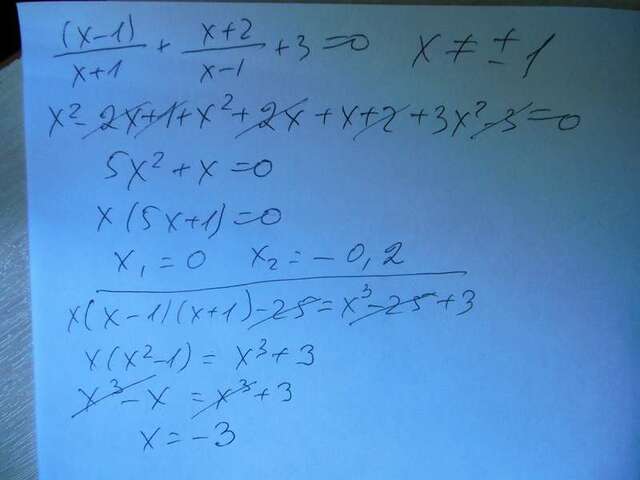 (x-1)/(x+1) + (x+2)/(x-1) + 3 = 0   x ≠ ± 1
x² - 2x + 1 + x² + 2x + x + 2 + 3x² - 3 = 0
5x² + x = 0
x(5x+1) = 0
x₁ = 0   x₂ = - 0,2
x(x-1)(x+1) - 25 = x³ - 25 + 3
x(x²-1) = x³ + 3
x³ - x = x³ + 3
x = - 3